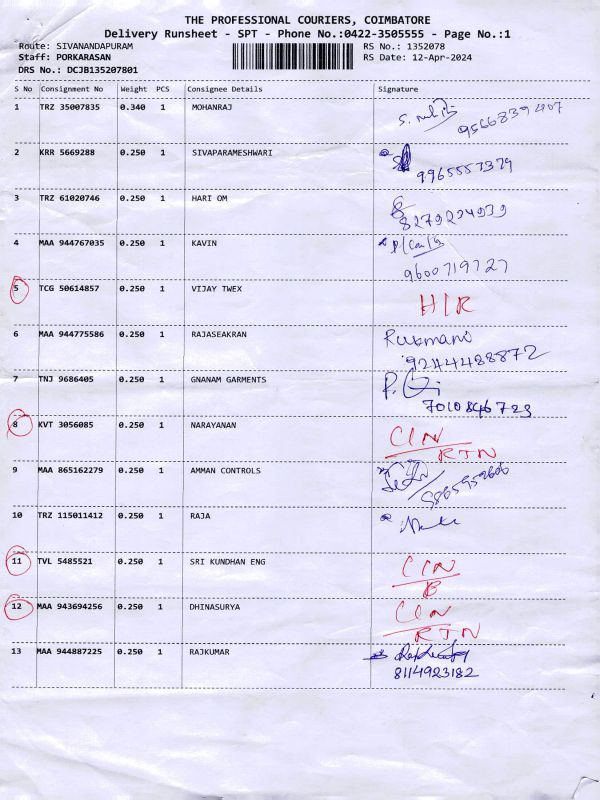 THE PROFESSIONAL COURIERS, COIMBATORE
Delivery Runsheet - SPT - Phone No.:0422-3505555 - Page No.:1
Route: SIVANANDAPURAM RS No.: 1352078
Staff: PORKARASAN RS Date: 12-Apr-2024
DRS No.: DCJB135207801
S No Consignment No Weight PCS Consignee Details Signature
1 TRZ 35007835 0.340 1 MOHANRAJ
9566839407
2 KRR 5669288 0.250 1 SIVAPARAMESHWARI
9965557379
3 TRZ 61020746 0.250 1 HARI OM
8279224939
4 MAA 944767035 0.250 1 KAVIN
9600719727
5 TCG 50614857 0.250 1 VIJAY TWEX H/R
6 MAA 944775586 0.250 1 RAJASEAKRAN Rukmani
9244488872
7 TNJ 9686405 0.250 1 GNANAM GARMENTS
7010846723
8 KVT 3056085 0.250 1 NARAYANAN CIN
RTN
9 MAA 865162279 0.250 1 AMMAN CONTROLS
10 TRZ 115011412 0.250 1 RAJA
11 TVL 5485521 0.250 1 SRI KUNDHAN ENG CIN
B
12 MAA 943694256 0.250 1 DHINASURYA CIN
RTN
13 MAA 944887225 0.250 1 RAJKUMAR
8114923182